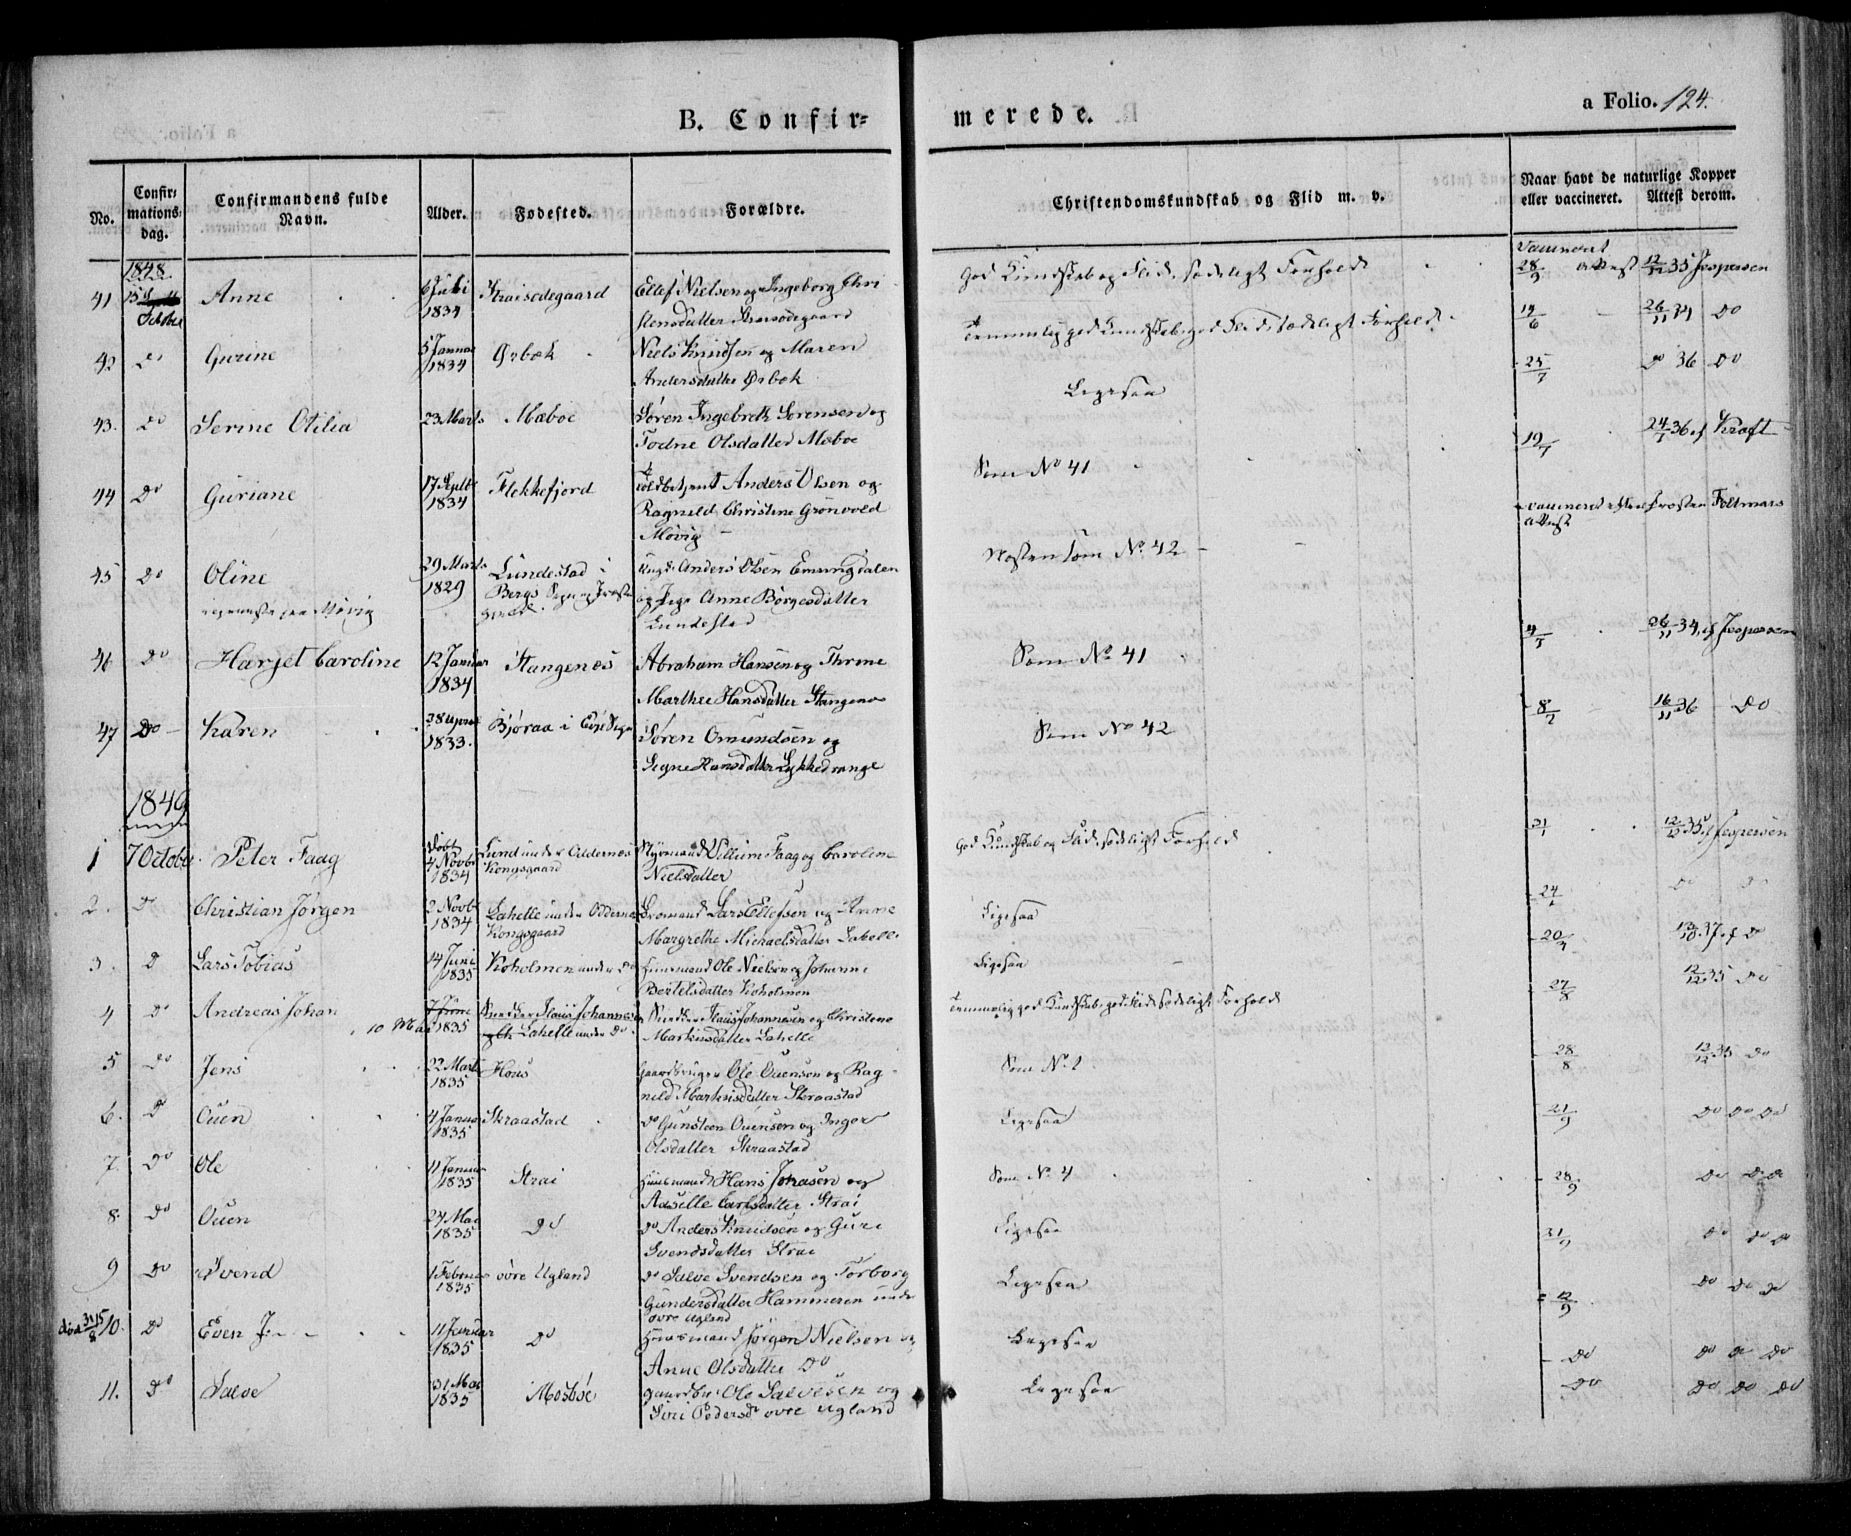 B. Confir=
merede.
a Folio. 124.
No.
Confir=
mations=
dag.
Confirmandens fulde
Navn.
Alder.
Fødested.
Forældre.
Christendomskundskab og Flid m. v.
Naar havt de naturlige Kopper
eller vaccineret. Attest derom.
1848.
41 15 October Anne 6 Juli 1834 Straisødegaard Ellef Nielsen og Ingeborg Chri
stensdatter God Kundskab og Flid, sædeligt Forhold 28/9 12/12 35 Jespersen
42 Do Gurine 5 Januar 1834 Ørbæk Niels Knudsen og Maren
Andersdatter Ørbæk Temmelig god Kundskab, god Flid, sædeligt Forhold 14/6 26/11 34 Do
43. Do Serine Otilia 23 Marts Mæboe Søren Ingebreth Sørensen og
Todne Olsdatter Mæboe Ligesaa 25/7 Do 36 Do
44 Do Guriane 17 Septbr 1834 Flekkefjord Toldbetjent Anders Olsen og
Ragnild Christine Grönvold
Møvig Som No 41 19/7 24/1 36 af Kraft
45 Do Oline 29 Marts 1829 Lundestad i
Bergs Sogn og Anders Olsen
og Pige Anne Börgesdatter
Lundestad Næsten som No. 42
Møvig
46 Do Harjet Caroline 12 Januar 1834 Stangenes Abraham Hansen og Thrine
Marthee Hansdatter Stangenes Som No 41 4/7 26/11 34, af Jespersen
47 Do Karen 28 April 1833. Bjøraa i Sogn Søren Omundsen og
Segne Hansdatter Lykkedrange Som No 42 8/7 16/11 36 Do
1849
1 7 October. Peter Faag Döbt 4 Novbr 1834 Lund under Oddernes
Kongsgaard Styrmand Villum Faag og Caroline
Nielsdatter God Kundskab og Flid, sædeligt Forhold 31/1 12/12 35 af Jespersen
2. Do Christian Jörgen 2 Novbr 1834 Lahelle under Oddernes
Kongsgaard Lars Ellefsen og Anne
Margrethe Michaelsdatter Lahelle Ligesaa 24/1 Do Do
3. Do Lars Tobias 14 Juni 1835 Koholmen under Do Huusmand Ole Nielsen og Johanne
Bertelsdatter Koholmen Ligesaa 20/9 13/10 37. af Do
4 Do Andreas Johan 10 Mai 1835 Lahelle under Do Snedker Johannesen og Christene
Markusdatter Lahelle Temmelig god Kundskab, god Flid, sædeligt Forhold 27/8 12/12 35 Do
5 Do Jens 22 Marts 1835 Gaardbruger Ole Ouensen og Rag
nild Markusdatter Skraastad Som No. 1 28/8 12/12 35 Do
6. Do Ouen 4 Januar 1835 Skraastad Do Gunsteen Ouensen og Inger
Olsdatter Skraastad Ligesaa 21/9 Do Do Do
7. Do Ole 11 Januar 1835 Strai Huusmand Hans Johnsen og
Carlsdatter Strai Som No. 4 28/9 Do Do
8. Do Ouen 24 Mai 1835 Do Do Anders Knudsen og Guri
Svendsdatter Strai Ligesaa 21/9 Do Do Do
9 Do Svend 1 Februar 1835 övre Ugland Do Salve Svendsen og Torborg
Gundersdatter Hammeren under
övre Ugland Ligesaa 12/9 Do Do Do
10. Do Even J 11 Januar 1835 Do Huusmand Jörgen Nielsen og
Anne Olsdatter Do Ligesaa Do Do Do Do
11. Do Salve 31 Mai 1835 Mosböe Gaardbr. Ole Salvesen og
Siri Pedersdr övre Ugland Ligesaa Do Do Do Do